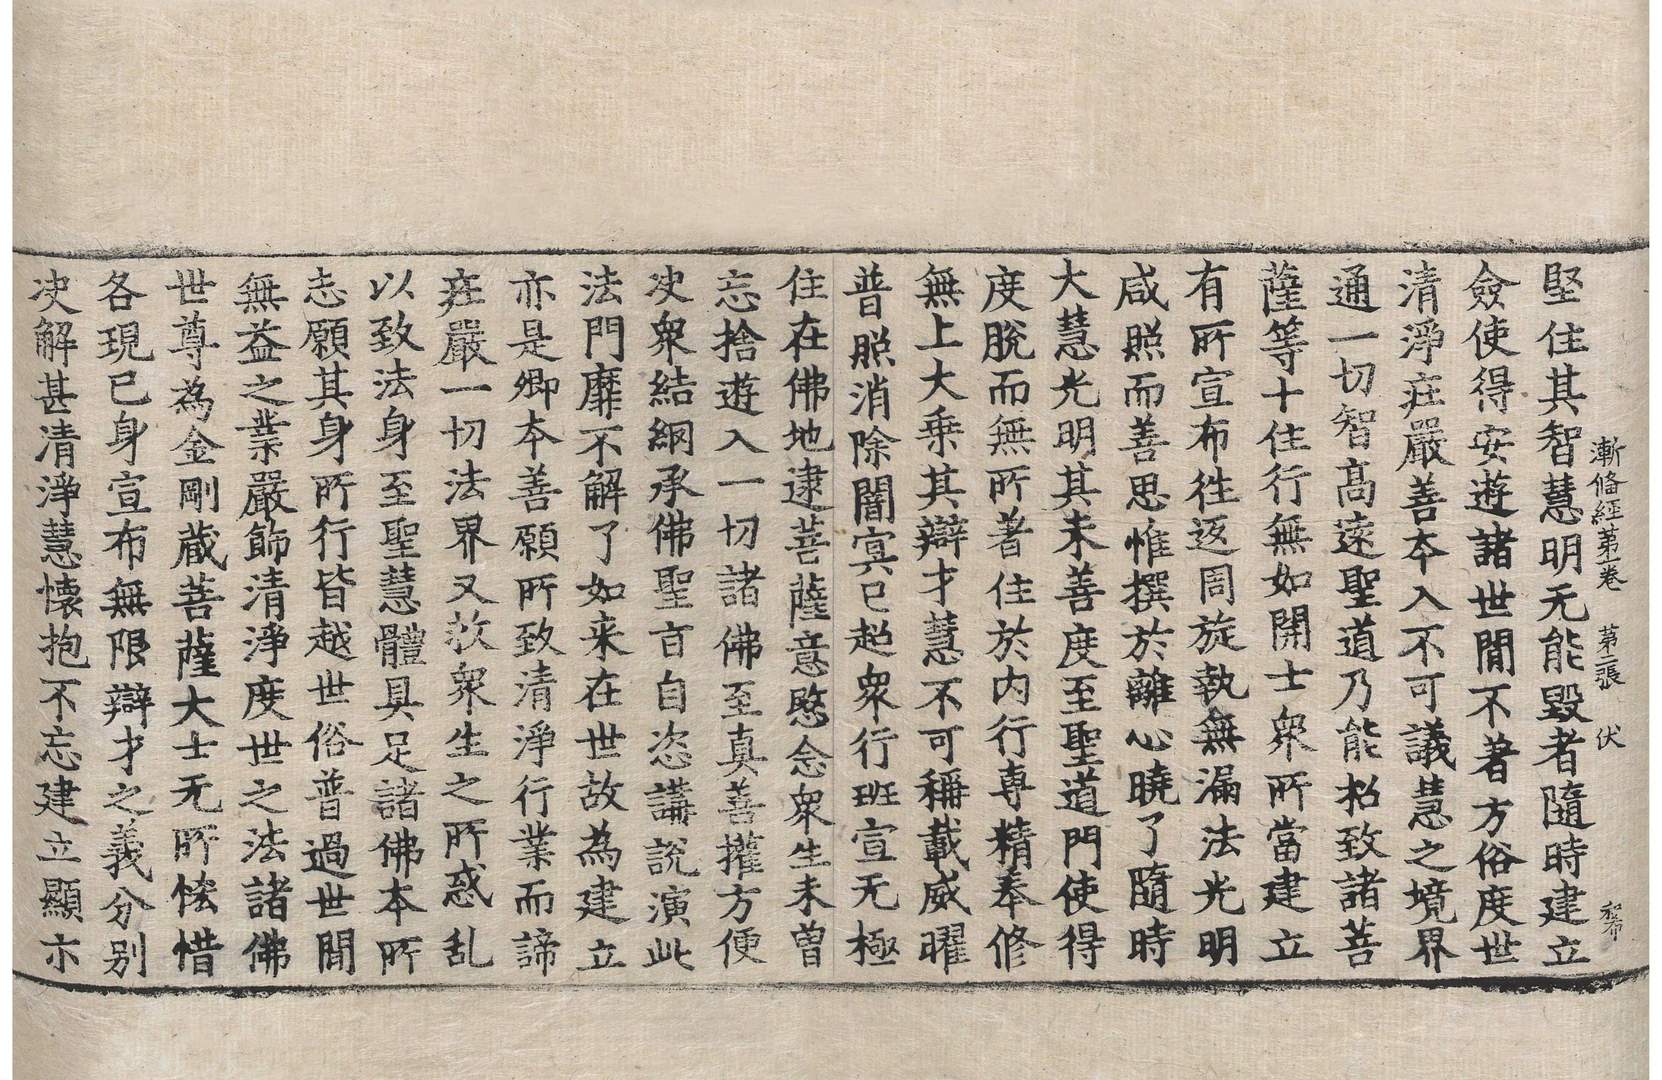 漸俻經第一卷 第二張 伏
堅住其智慧明无能毀者隨時建立
僉使得安遊諸世間不著方俗度世
清淨庄嚴善夲入不可議慧之境界
通一切智髙逺聖道乃能招致諸菩
薩等十住行無如開士衆所當建立
有所宣布徃返周旋執無漏法光明
咸照而善思惟撰於離心曉了隨時
大慧光明其未善度至聖道門使得
度脫而無所著住於内行専精奉修
無上大乗其辯才慧不可稱載威曜
普照消除闇冥已越衆行班宣无極
住在佛地逮菩薩意愍念衆生未曽
忘捨遊入一切諸佛至真善權方便
决衆結網承佛聖㫖自恣講說演此
法門靡不解了如来在世故為建立
亦是卿夲善願所致清淨行業而諦
庄嚴一切法界又救衆生之所惑乱
以致法身至聖慧體具足諸佛夲所
志願其身所行皆越世俗普過世間
無益之業嚴飾清淨度世之法諸佛
世尊為金剛蔵菩薩大士无所恡惜
各現已身宣布無限辯才之義分别
决解甚清淨慧懐抱不忘建立顯尒